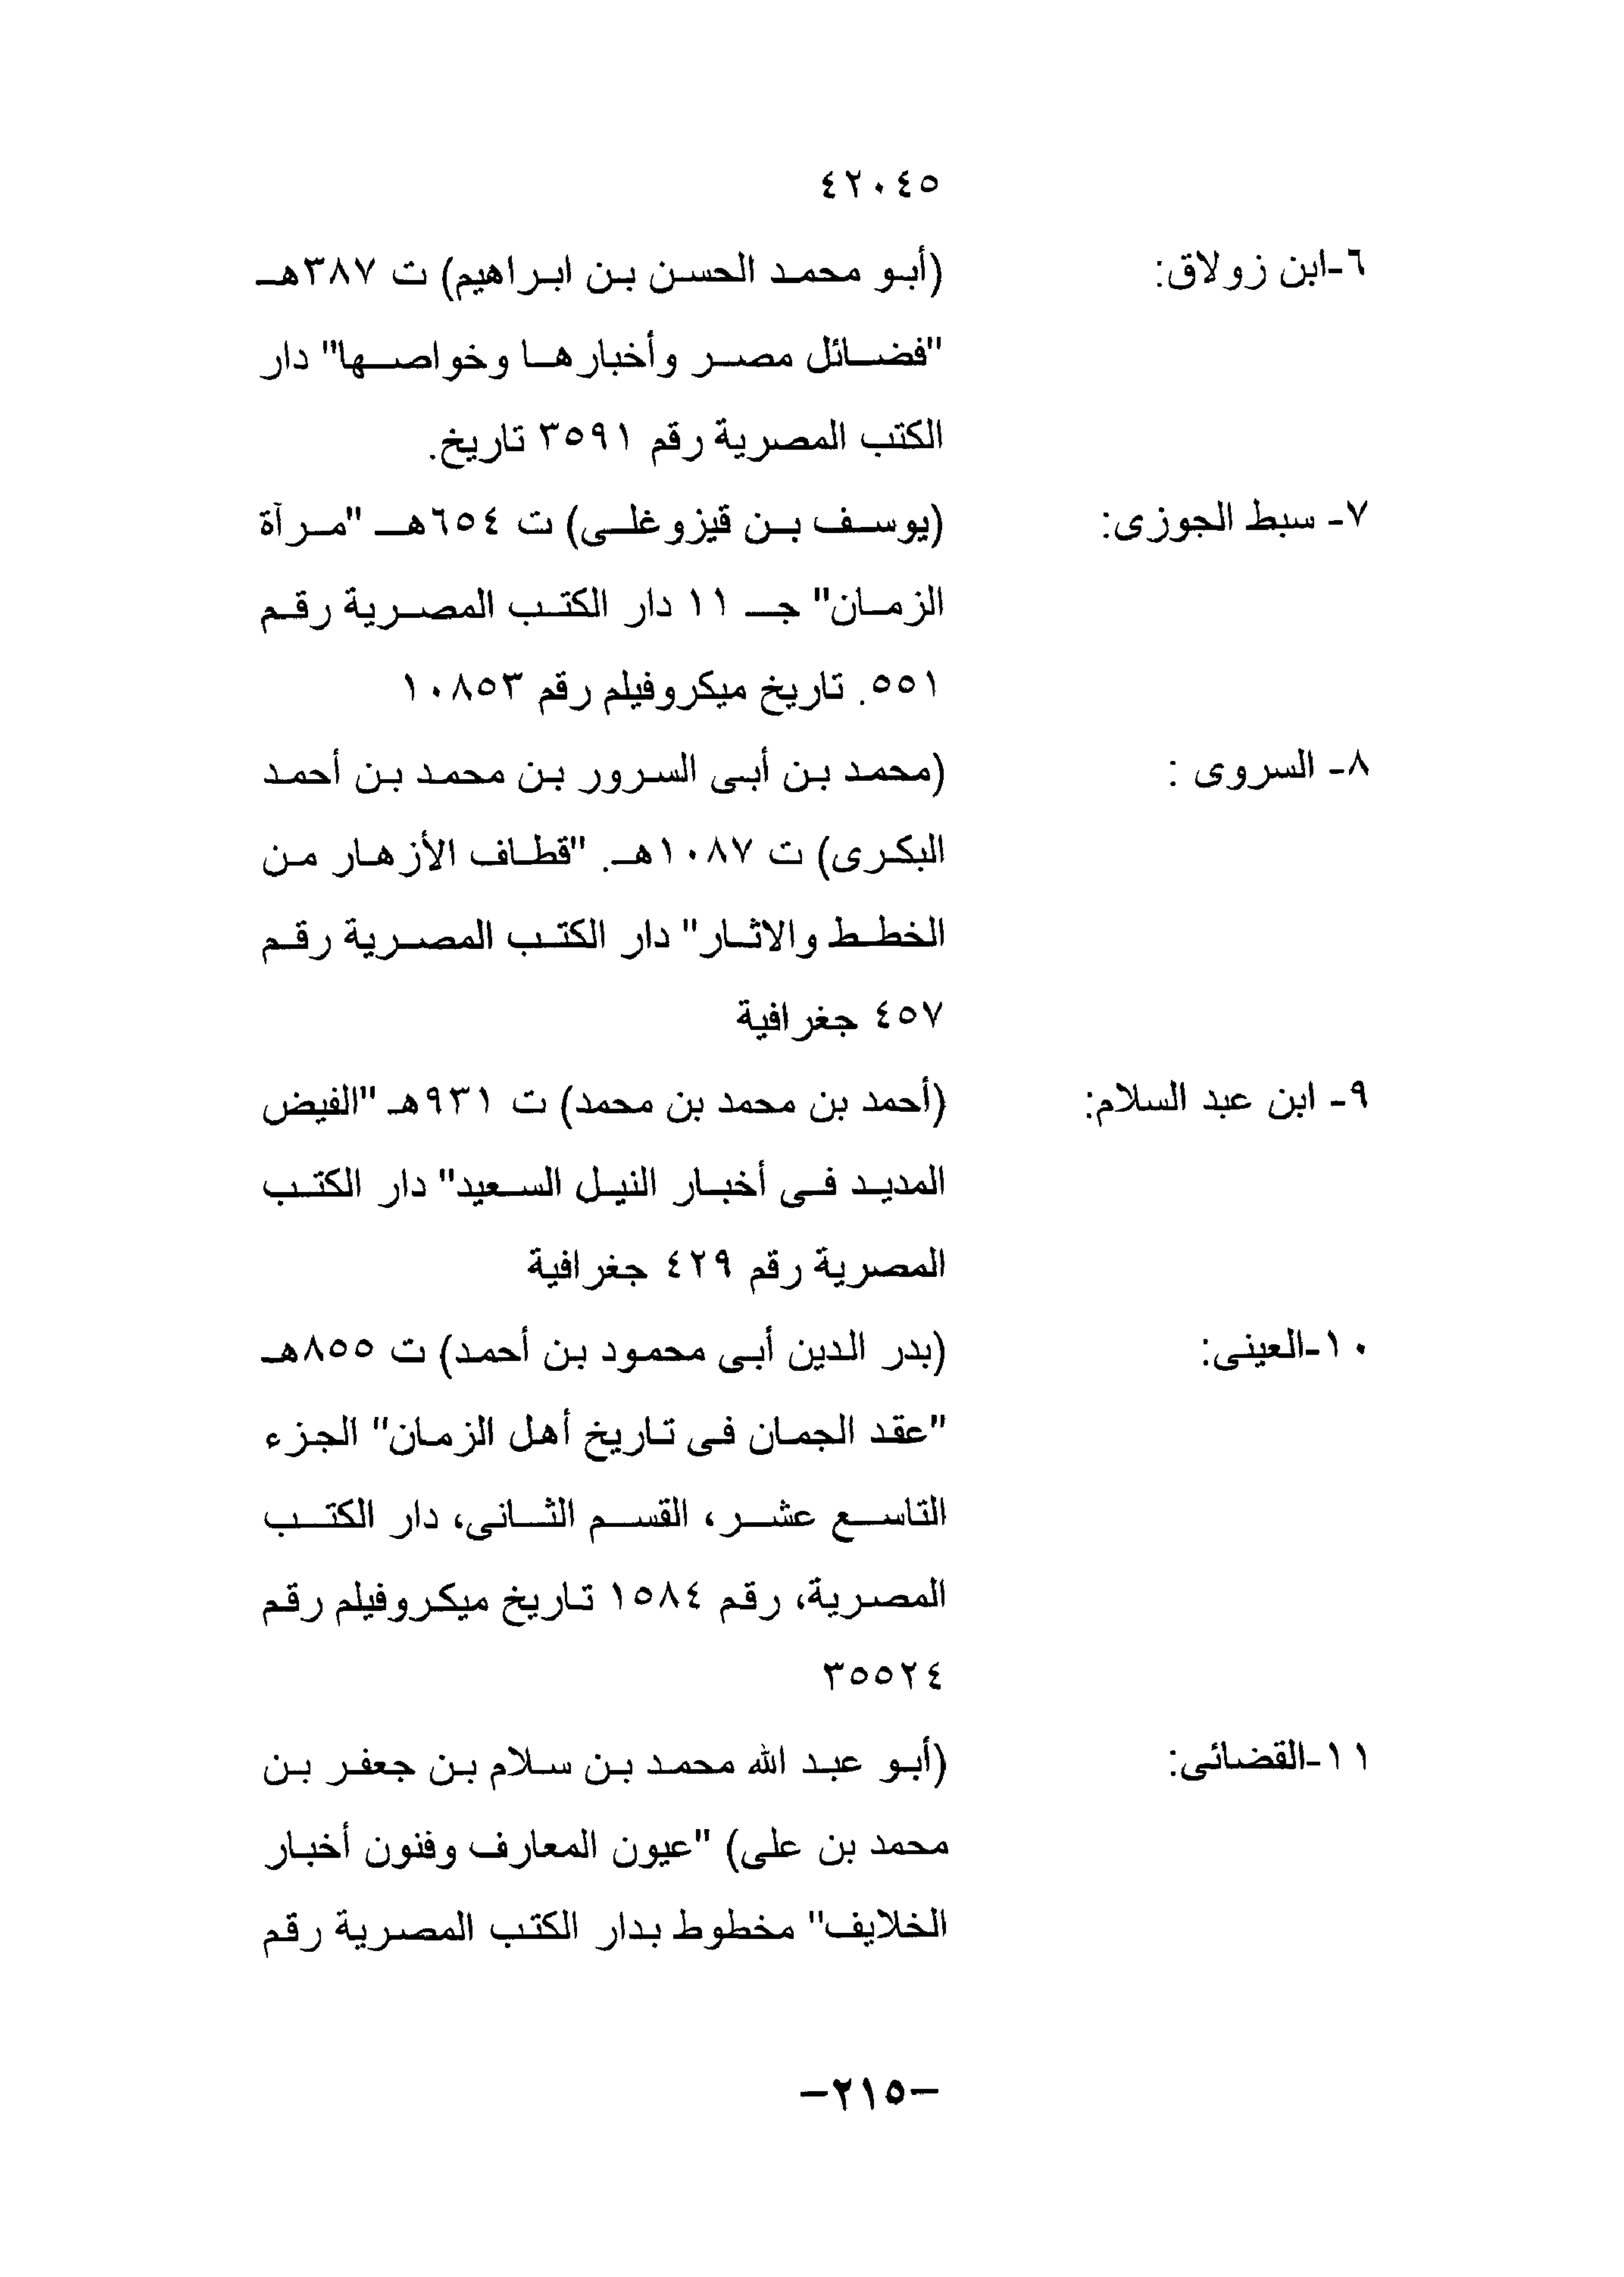 ٤٢٠٤٥
٦-ابن زولاق: (أبو محمد الحسن بن ابراهيم) ت ٣٨٧هـ
"فضائل مصر وأخبارها وخواصها" دار
الكتب المصرية رقم ٣٥٩١ تاريخ.
٧- سبط الجوزى: (يوسف بن قيزوغلى) ت ٦٥٤هـ "مرآة
الزمان" جـ ١١ دار الكتب المصرية رقم
٥٥١. تاريخ ميكروفيلم رقم ١٠٨٥٣
٨- السروى : (محمد بن أبى السرور بن محمد بن أحمد
البكرى) ت ١٠٨٧هـ. "قطاف الأزهار من
الخطط والاثار" دار الكتب المصرية رقم
٤٥٧ جغرافية
٩- ابن عبد السلام: (أحمد بن محمد بن محمد) ت ٩٣١هـ "الفيض
المديد فى أخبار النيل السعيد" دار الكتب
المصرية رقم ٤٢٩ جغرافية
١٠-العينى: (بدر الدين أبى محمود بن أحمد) ت ٨٥٥هـ
"عقد الجمان فى تاريخ أهل الزمان" الجزء
التاسع عشر، القسم الثانى، دار الكتب
المصرية، رقم ١٥٨٤ تاريخ ميكروفيلم رقم
٣٥٥٢٤
١١-القضائى: (أبو عبد الله محمد بن سلام بن جعفر بن
محمد بن على) "عيون المعارف وفنون أخبار
الخلايف" مخطوط بدار الكتب المصرية رقم
-٢١٥-